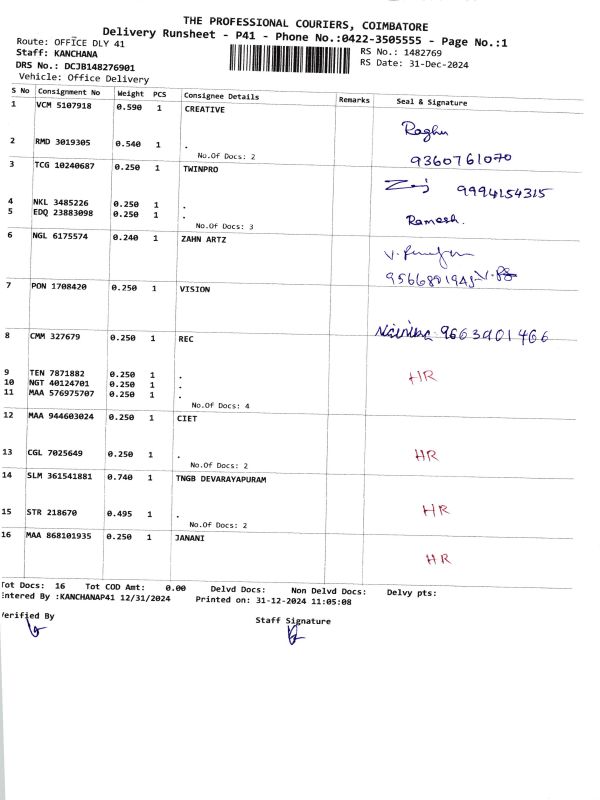 THE PROFESSIONAL COURIERS, COIMBATORE
Delivery Runsheet - P41 - Phone No.:0422-3505555 - Page No.:1
Route: OFFICE DLY 41
Staff: KANCHANA
RS No.: 1482769
DRS No.: DCJB148276901
RS Date: 31-Dec-2024
Vehicle: Office Delivery
S No Consignment No Weight PCS Consignee Details Remarks Seal & Signature
1 VCM 5107918 0.590 1 CREATIVE
Raghu
2 RMD 3019305 0.540 1 .
No.Of Docs: 2
9360761070
3 TCG 10240687 0.250 1 TWINPRO
9994154315
4 NKL 3485226 0.250 1 .
5 EDQ 23883098 0.250 1 .
Ramesh.
No.Of Docs: 3
6 NGL 6175574 0.240 1 ZAHN ARTZ
7 PON 1708420 0.250 1 VISION
9663901466
8 CMM 327679 0.250 1 REC
9 TEN 7871882 0.250 1 .
10 NGT 40124701 0.250 1 .
HR
11 MAA 576975707 0.250 1 .
No.Of Docs: 4
12 MAA 944603024 0.250 1 CIET
13 CGL 7025649 0.250 1 .
HR
No.Of Docs: 2
14 SLM 361541881 0.740 1 TNGB DEVARAYAPURAM
15 STR 218670 0.495 1 .
HR
No.Of Docs: 2
16 MAA 868101935 0.250 1 JANANI
HR
Tot Docs: 16 Tot COD Amt: 0.00 Delvd Docs: Non Delvd Docs: Delvy pts:
Entered By :KANCHANAP41 12/31/2024 Printed on: 31-12-2024 11:05:08
Verified By
Staff Signature